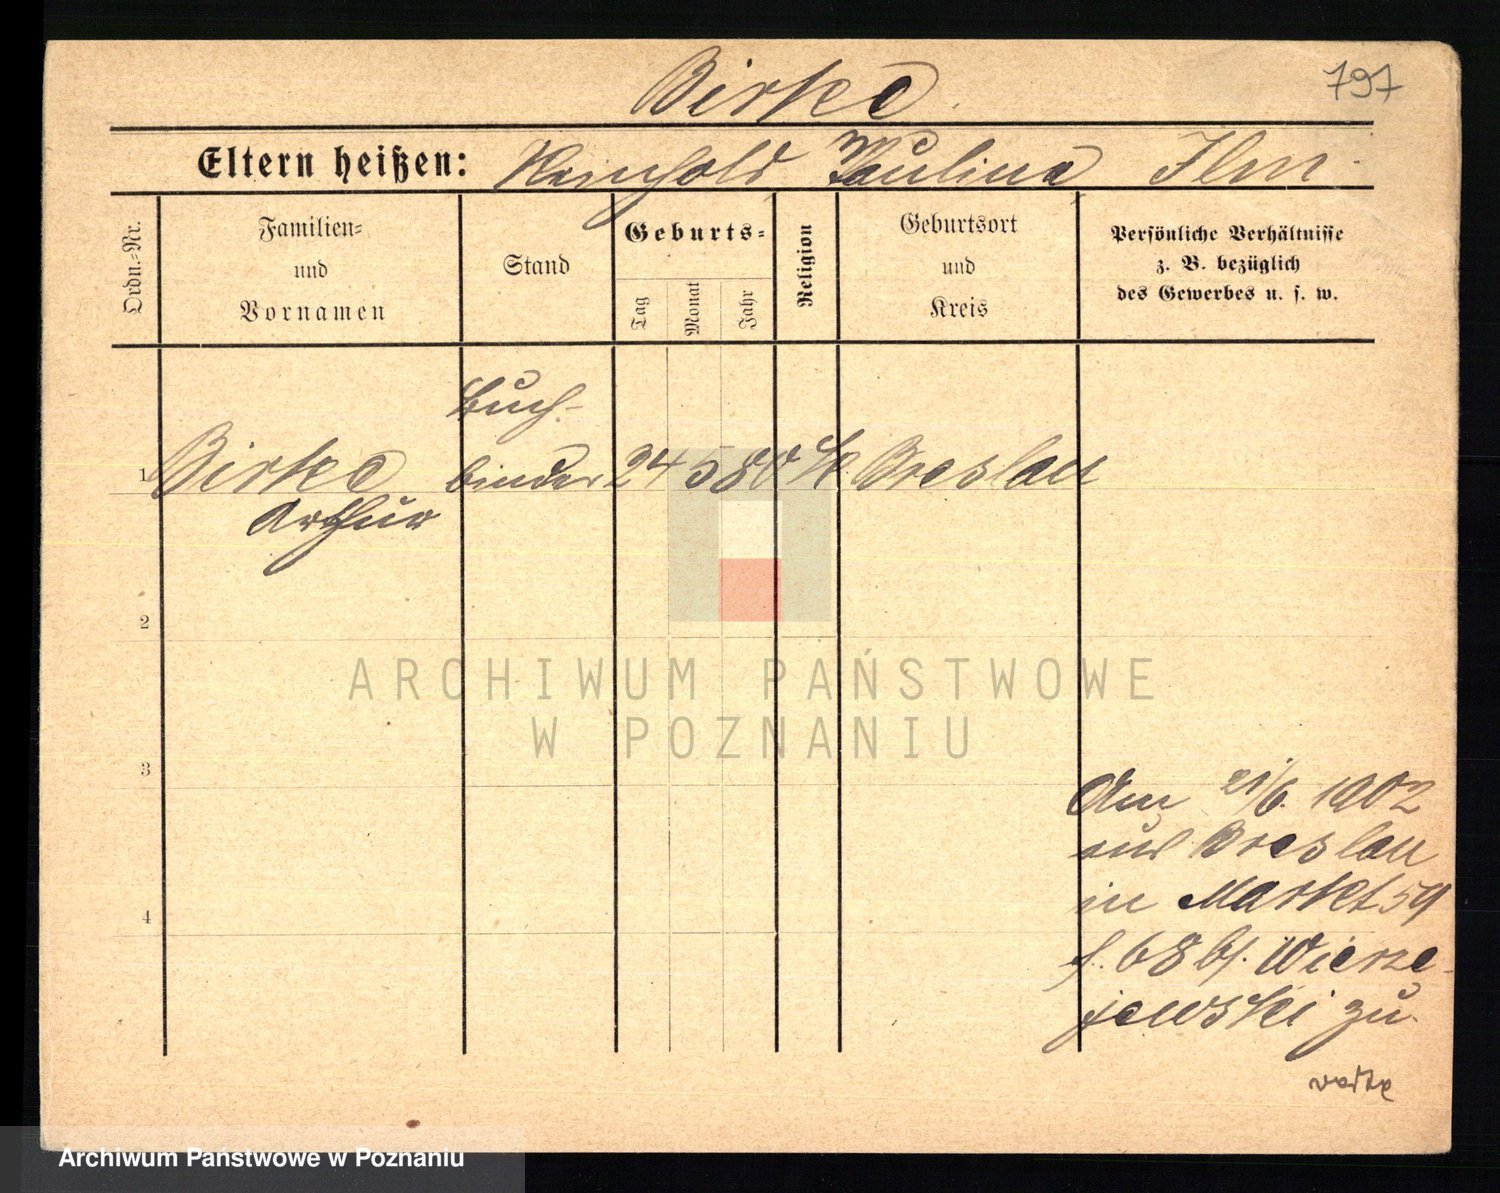 Birke
797
Eltern heißen: Reinhold Paulina Ilm
Ordn.=Nr.
Familien=
und
Vornamen
Stand
Geburts=
Tag
Monat
Jahr
Religion
Geburtsort
und
Kreis
Persönliche Verhältnisse
z. B. bezüglich
des Gewerbes u. s. w.
Buch-
1 Birke binder 24 5 80 K. Breslau
Arthur
2
3
4
Am 21/6. 1902
aus Breslau
in Markt 59
b/. Wierze-
jewski zu.
verte
ARCHIWUM PAŃSTWOWE
W POZNANIU
Archiwum Państwowe w Poznaniu